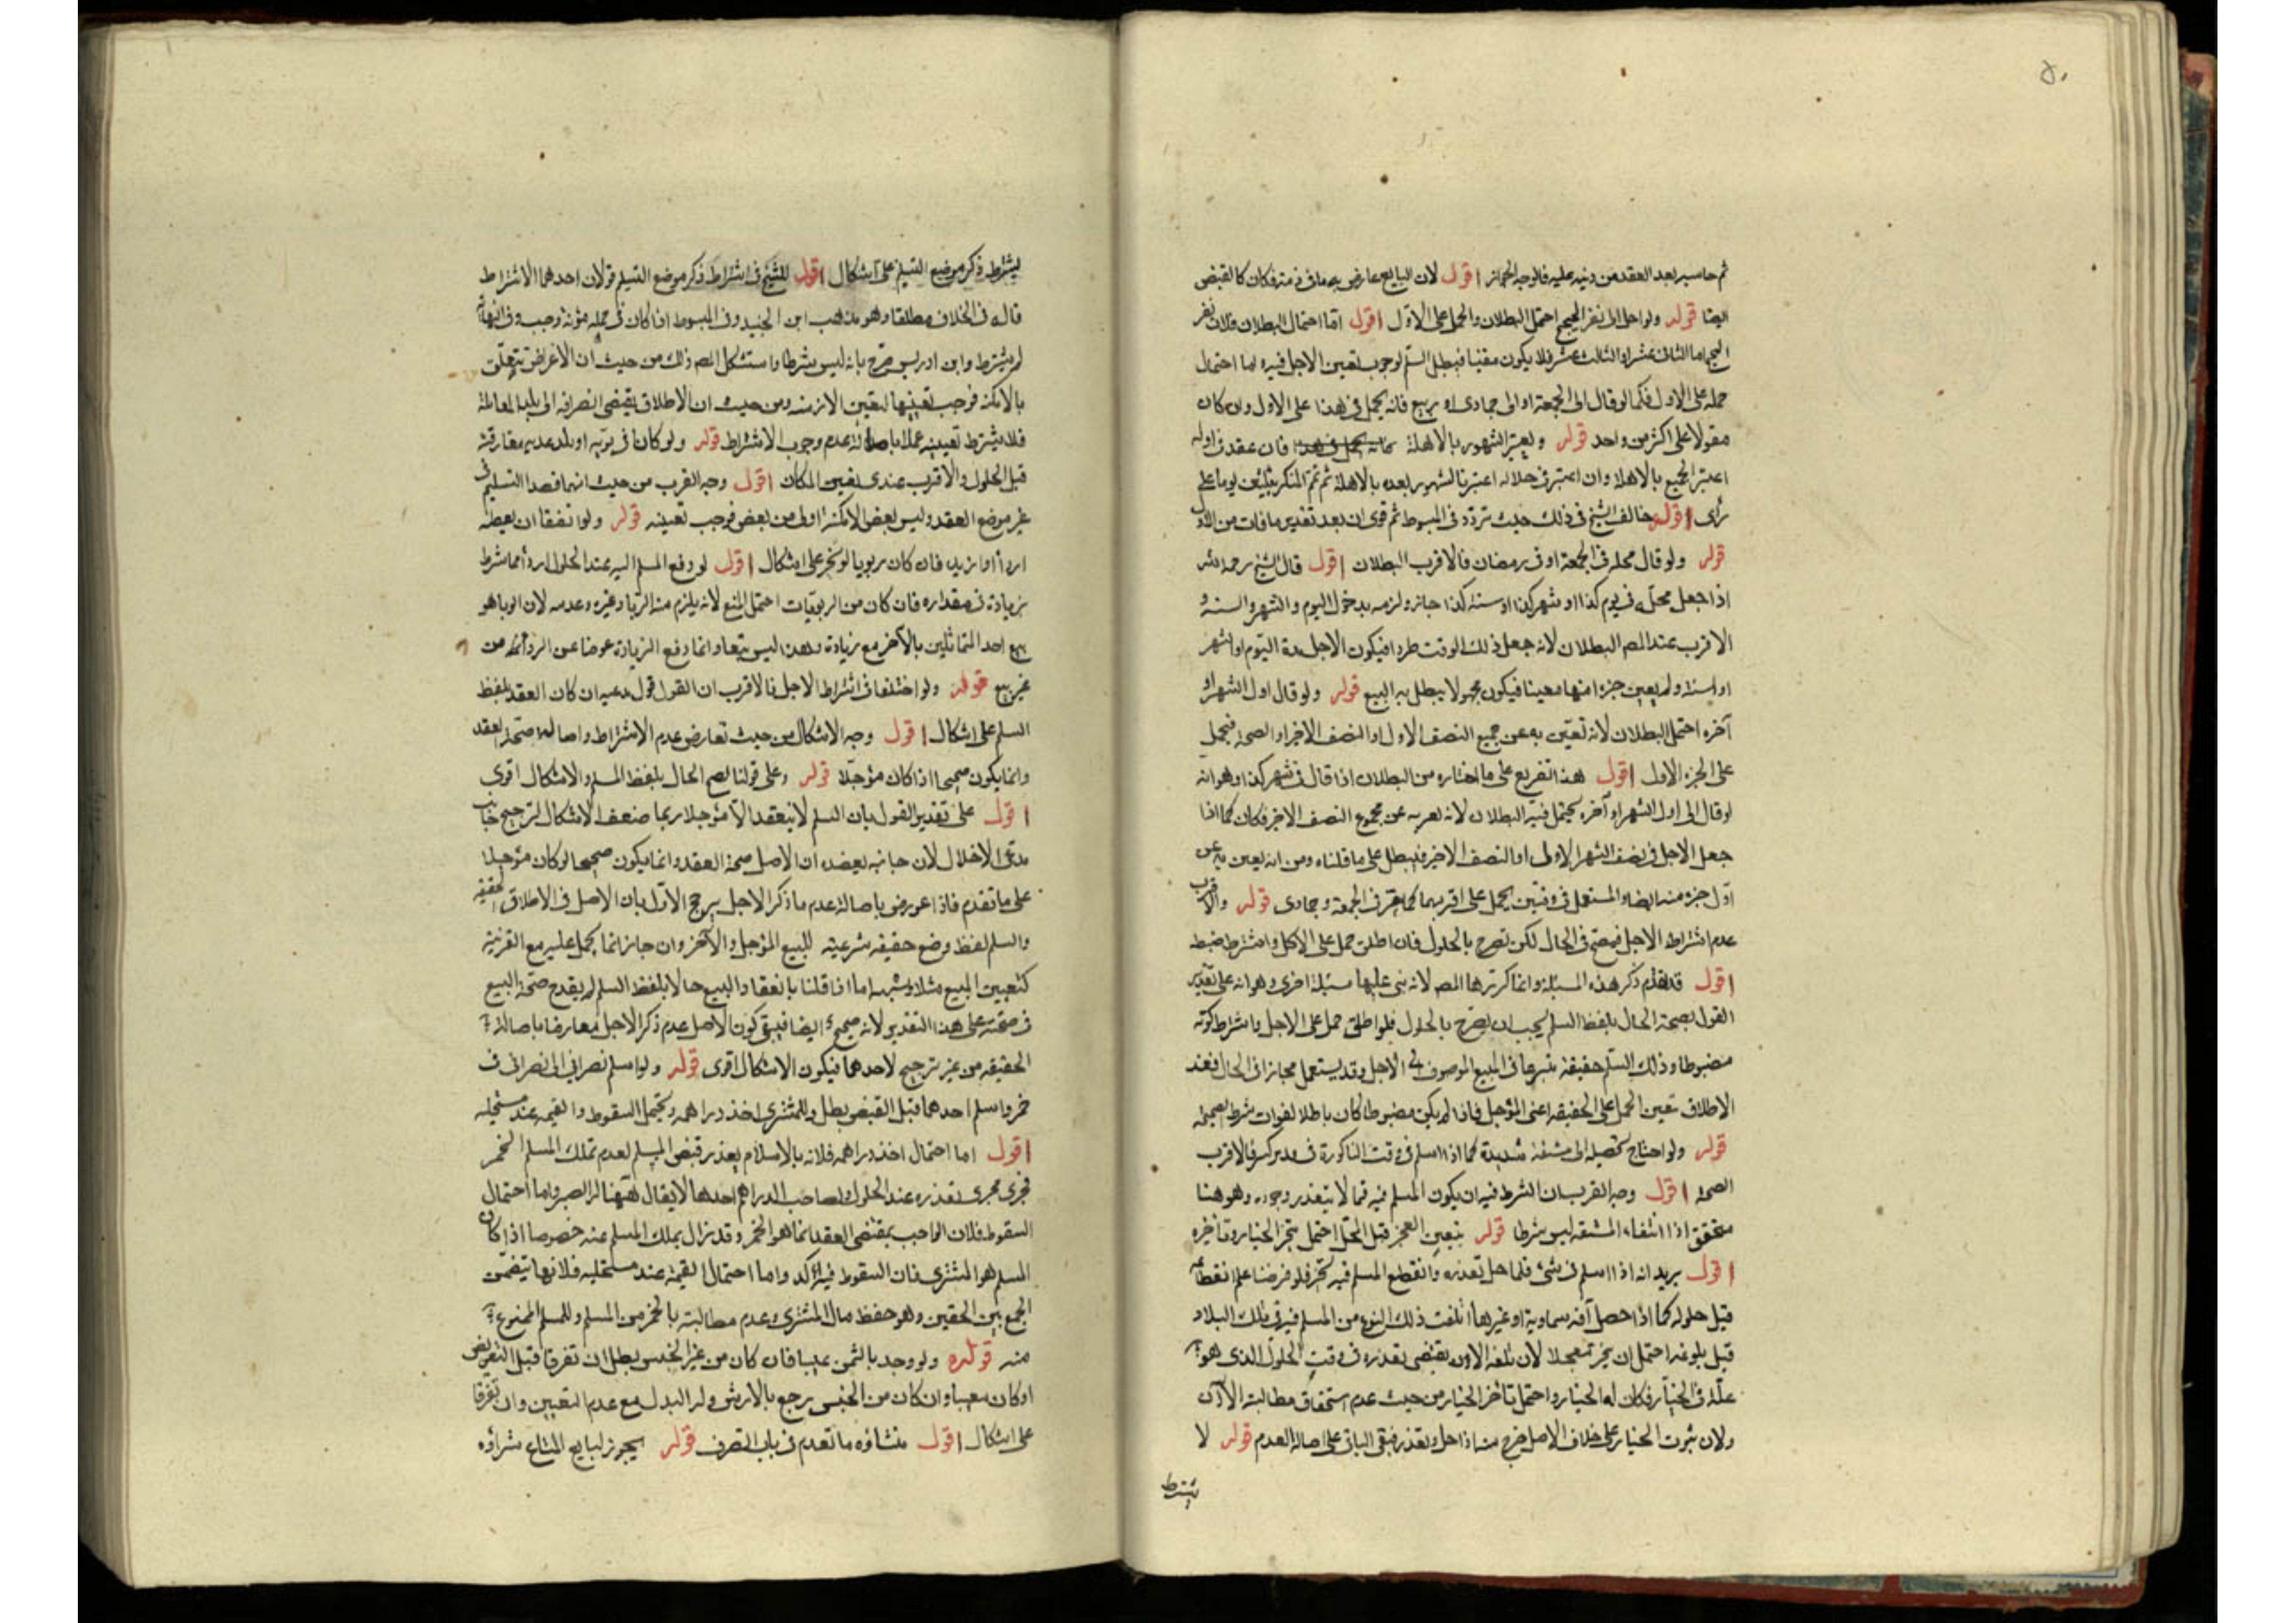 ٥٠
ثم حاسبه بعد العقد من دينه عليه فالوجه الجواز اقول لان البايع عارض به ما فى ذمته فكان كالقبض
ايضا قوله ولو احل الى نفر الحجيج احتمل البطلان والحمل على الاول اقول اما احتمال البطلان فلان نفر
الحجيج اما الثانى عشر او الثالث عشر فلا يكون معينا فيبطل السلم لوجوب تعيين الاجل فيه اما احتمال
حمله على الاول فكما لو قال الى الجمعة او الى جمادى او ربيع فانه يحمل فى هذا على الاول وان كان
مقولا على اكثر من واحد قوله ويعتبر الشهور بالاهلة فان عقد فى اوله
اعتبر الجميع بالاهلة وان اعتبر فى خلاله اعتبرنا الشهور بعده بالاهلة ثم تمم المنكر بثلثين يوما على
رأى اقول خالف الشيخ فى ذلك حيث تردد فى المبسوط ثم قوى ان بعد تقدير ما فات من الاول
قوله ولو قال محله فى الجمعة او فى رمضان فالاقرب البطلان اقول قال الشيخ رحمه الله
اذا جعل محله فى يوم كذا او شهر كذا او سنة كذا جاز ولزمه بدخول اليوم والشهر والسنة و
الاقرب عند المص البطلان لانه جعل ذلك الوقت ظرفا فيكون الاجل مدة اليوم او الشهر
او السنة ولم يعين جزءا منها معينا فيكون مجهولا يبطل به البيع قوله ولو قال اول الشهر او
آخره احتمل البطلان لانه تعين به عن جميع النصف الاول او النصف الاخير او الصحة فيحمل
على الجزء الاول اقول هذا تفريع على ما اختاره من البطلان اذا قال فى شهر كذا وهو انه
لو قال الى اول الشهر او آخره يحتمل فيه البطلان لانه يعبر به عن مجموع النصف الاخير فكان كما اذا
جعل الاجل فى نصف الشهر الاول او النصف الاخير فيبطل على ما قلناه ومن انه يعبر به عن
اول جزء منه ايضا والمستعمل فى وقتين يحمل على اقربهما كما تقرر فى الجمعة وجمادى قوله والاقرب
عدم اشتراط الاجل فيصح فى الحال لكن يصرح بالحلول فان اطلق حمل على الاجل واشترط ضبطه
اقول قد تقدم ذكر هذه المسئلة وانما كررها المص لانه بنى عليها مسئلة اخرى وهو انه على تقدير
القول بصحة الحال بلفظ السلم يجب ان يصرح بالحلول فلو اطلق حمل على الاجل واشترط كونه
مضبوطا وذلك السلم حقيقة شرعا فى المبيع الموصوف الى الاجل وقد يستعمل مجازا فى الحال فعند
الاطلاق تعين الحمل على الحقيقة اعنى المؤجل فاذا لم يكن مضبوطا كان باطلا لفوات شرط الصحة
قوله ولو احتاج تحصيله الى مشقة شديدة كما اذا اسلم فى وقت الباكورة فى قدر كثير فالاقرب
الصحة اقول وجه القرب ان الشرط فيه ان يكون المسلم فيه مما لا يتعذر وجوده وهو هنا
متحقق اذ انتفاء المشقة ليس شرطا قوله بتعين العجز قبل المحل احتمل تنجز الخيار وتأخيره
اقول يريد انه اذا اسلم فى شئ فلما حل تعذر وانقطع المسلم فيه تخير فلو فرضنا علم انقطاعه
قبل حلوله كما اذا حصل آفة سماوية او غيرها اتلفت ذلك النوع من المسلم فيه فى تلك البلاد
قبل بلوغه احتمل ان يتخير معجلا لان تلفه الان يقتضى تعذره فى وقت الحلول الذى هو
علة فى الخيار فكان له الخيار واحتمل تأخر الخيار من حيث عدم استحقاق مطالبته الآن
ولان ثبوت الخيار على خلاف الاصل خرج منه اذا حل وتعذر فبقى الباقى على اصالة العدم قوله لا
يشترط
يشترط ذكر موضع التسليم على اشكال اقول للشيخ فى اشتراط ذكر موضع التسليم قولان احدهما الاشتراط
قاله فى الخلاف مطلقا وهو مذهب ابن الجنيد وفى المبسوط اذا كان فى حمله مؤنة وجب
لم يشترط وابن ادريس صرح بانه ليس شرطا واستشكل المص ذلك من حيث ان الاغراض تتعلق
بالامكنة فوجب تعيينها كتعيين الازمنة ومن حيث ان الاطلاق يقتضى انصرافه الى بلد المعاملة
فلا يشترط تعيينه عملا باصالة عدم وجوب الاشتراط قوله ولو كانا فى برية او بلد عدية مفارقته
قبل الحلول فالاقرب عندى تعيين المكان اقول وجه القرب من حيث انهما قصدا التسليم فى
غير موضع العقد وليس بعض الامكنة اولى من بعض فوجب تعيينه قوله ولو اتفقا ان يعطيه
اردأ او ازيد فان كان ربويا لم يجز على اشكال اقول لو دفع المسلم اليه عند الحلول اردأ مما شرط
بزيادة فى مقداره فان كان من الربويات احتمل المنع لانه يلزم منه الربا وغيره وعدمه لان الربا هو
بيع احد المتماثلين بالآخر مع زيادة وهذا ليس بيعا وانما دفع الزيادة عوضا عن الردائة من
غير بيع قوله ولو اختلفا فى اشتراط الاجل فالاقرب ان القول قول مدعيه ان كان العقد بلفظ
السلم على اشكال اقول وجه الاشكال من حيث تعارض عدم الاشتراط واصالة صحة العقد
وانما يكون صحيحا اذا كان مؤجلا قوله وعلى قولنا بصحة الحال بلفظ السلم فالاشكال اقوى
اقول على تقدير القول بان السلم لا ينعقد الا مؤجلا ربما ضعف الاشكال لترجيح جانب
مدعى الاخلال لان جانبه يعضده ان الاصل صحة العقد وانما يكون صحيحا لو كان مؤجلا
على ما تقدم فاذا عورض باصالة عدم ما ذكر الاجل يرجح الاول بان الاصل فى الاطلاق الحقيقة
والسلم لفظ وضع حقيقة شرعية للبيع المؤجل والآخر وان جاز انما يحمل عليه مع القرينة
كتعيين المبيع مثلا وشبهه اما اذا قلنا بانعقاد البيع حالا بلفظ السلم لم يقدح صحة البيع
فى صحته على هذا التقدير لانه صحيح ايضا فيبقى كون الاصل عدم ذكر الاجل معارضا باصالة
الحقيقة من غير ترجيح لاحدهما فيكون الاشكال اقوى قوله ولو اسلم نصرانى الى نصرانى فى
خمر واسلم احدهما قبل القبض بطل وللمشترى اخذ دراهمه ويحتمل السقوط والقيمة عند مستحليه
اقول اما احتمال اخذ دراهمه فلانه بالاسلام يعذر قبض المسلم لعدم تملك المسلم الخمر
فجرى مجرى تعذره عند الحلول ولصاحب الدراهم اخذها لا يقال فههنا له الصبر واما احتمال
السقوط فلان الواجب بمقتضى العقد انما هو الخمر وقد زال بملك المسلم عنه خصوصا اذا كان
المسلم هو المشترى فان السقوط فيه آكد واما احتمال القيمة عند مستحليه فلانها تتضمن
الجمع بين الحقين وهو حفظ مال المشترى وعدم مطالبته بالخمر من المسلم وللمسلم الممنوع
منه قوله ولو وجد بالثمن عيبا فان كان من غير الجنس بطل ان تفرقا قبل التعويض
او كان معينا وان كان من الجنس رجع بالارش وله البدل مع عدم التعيين وان تفرقا
على اشكال اقول منشاؤه ما تقدم فى باب الصرف قوله يجوز لبايع المتاع شراؤه